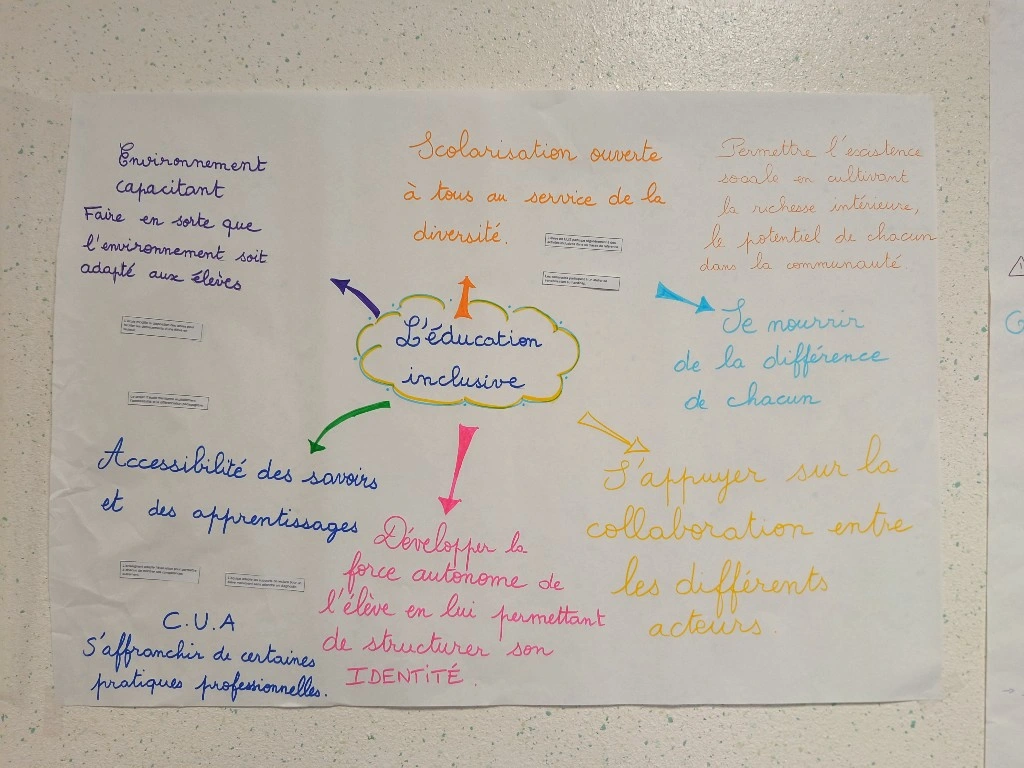 Environnement
capacitant
Faire en sorte que
l'environnement soit
adapté aux élèves
Scolarisation ouverte
à tous au service de la
diversité.
Permettre l'existence
sociale en cultivant
la richesse intérieure,
le potentiel de chacun
dans la communauté
L'éducation
inclusive
Se nourrir
de la différence
de chacun
Accessibilité des savoirs
et des apprentissages
C.U.A
S'affranchir de certaines
pratiques professionnelles.
Développer la
force autonome de
l'élève en lui permettant
de structurer son
IDENTITÉ.
S'appuyer sur la
collaboration entre
les différents
acteurs.